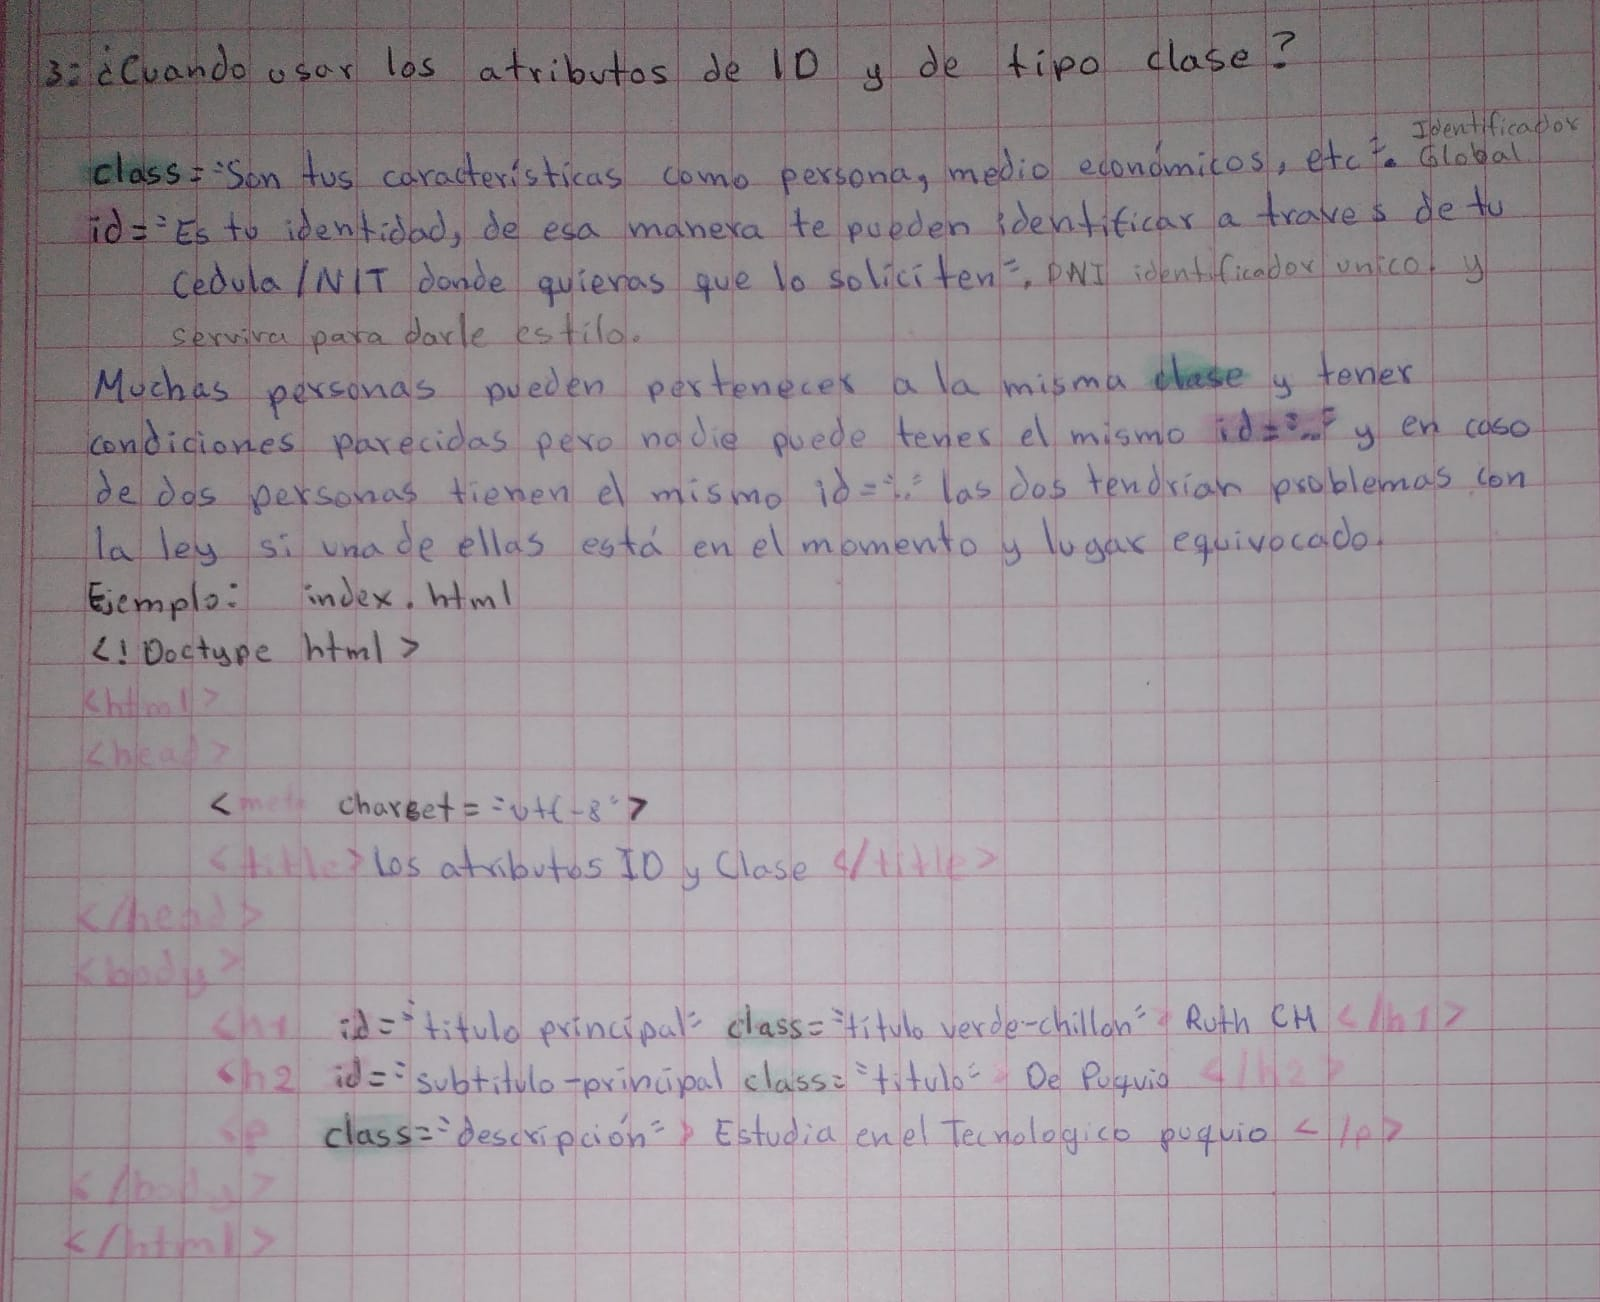 3: ¿Cuando usar los atributos de ID y de tipo clase?
Identificador
class="Son tus características como persona, medio económicos, etc". Global
id="Es tu identidad, de esa manera te pueden identificar a traves de tu
Cedula/NIT donde quieras que lo soliciten", DNI identificador unico y
servira para darle estilo.
Muchas personas pueden pertenecer a la misma clase y tener
condiciones parecidas pero nadie puede tener el mismo id="..." y en caso
de dos personas tienen el mismo id=".." las dos tendrian problemas con
la ley si una de ellas está en el momento y lugar equivocado.
Ejemplo: index.html
<!Doctype html>
<html>
<head>
<meta charset="utf-8">
<title>Los atributos ID y Clase </title>
</head>
<body>
<h1 id="titulo principal" class="título verde-chillon"> Ruth CM </h1>
<h2 id="subtitulo-principal class="titulo"> De Puquio </h2>
<p class="descripción"> Estudia en el Tecnologico puquio </p>
</body>
</html>